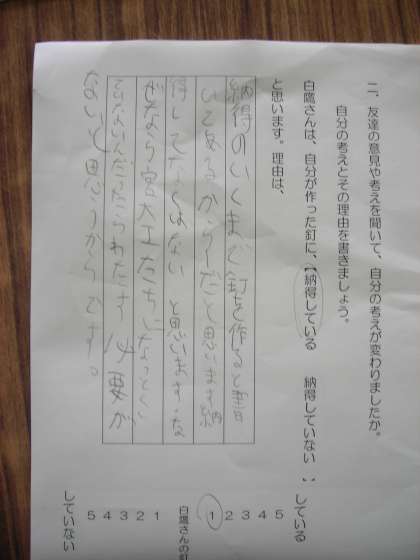 二、友達の意見や考えを聞いて、自分の考えが変わりましたか。
自分の考えとその理由を書きましょう。
白鷹さんは、自分が作った釘に、【納得している　納得していない】
と思います。理由は、
納得のいくまで釘を作ると書
いてあるからだと思います。納
得してたらくぎはない と思います。な
ぜなら宮大工たちに
わたす 必要が
ないと思うからです。
している
5
4
3
2
1
白鷹さんの釘
1
2
3
4
5
していない